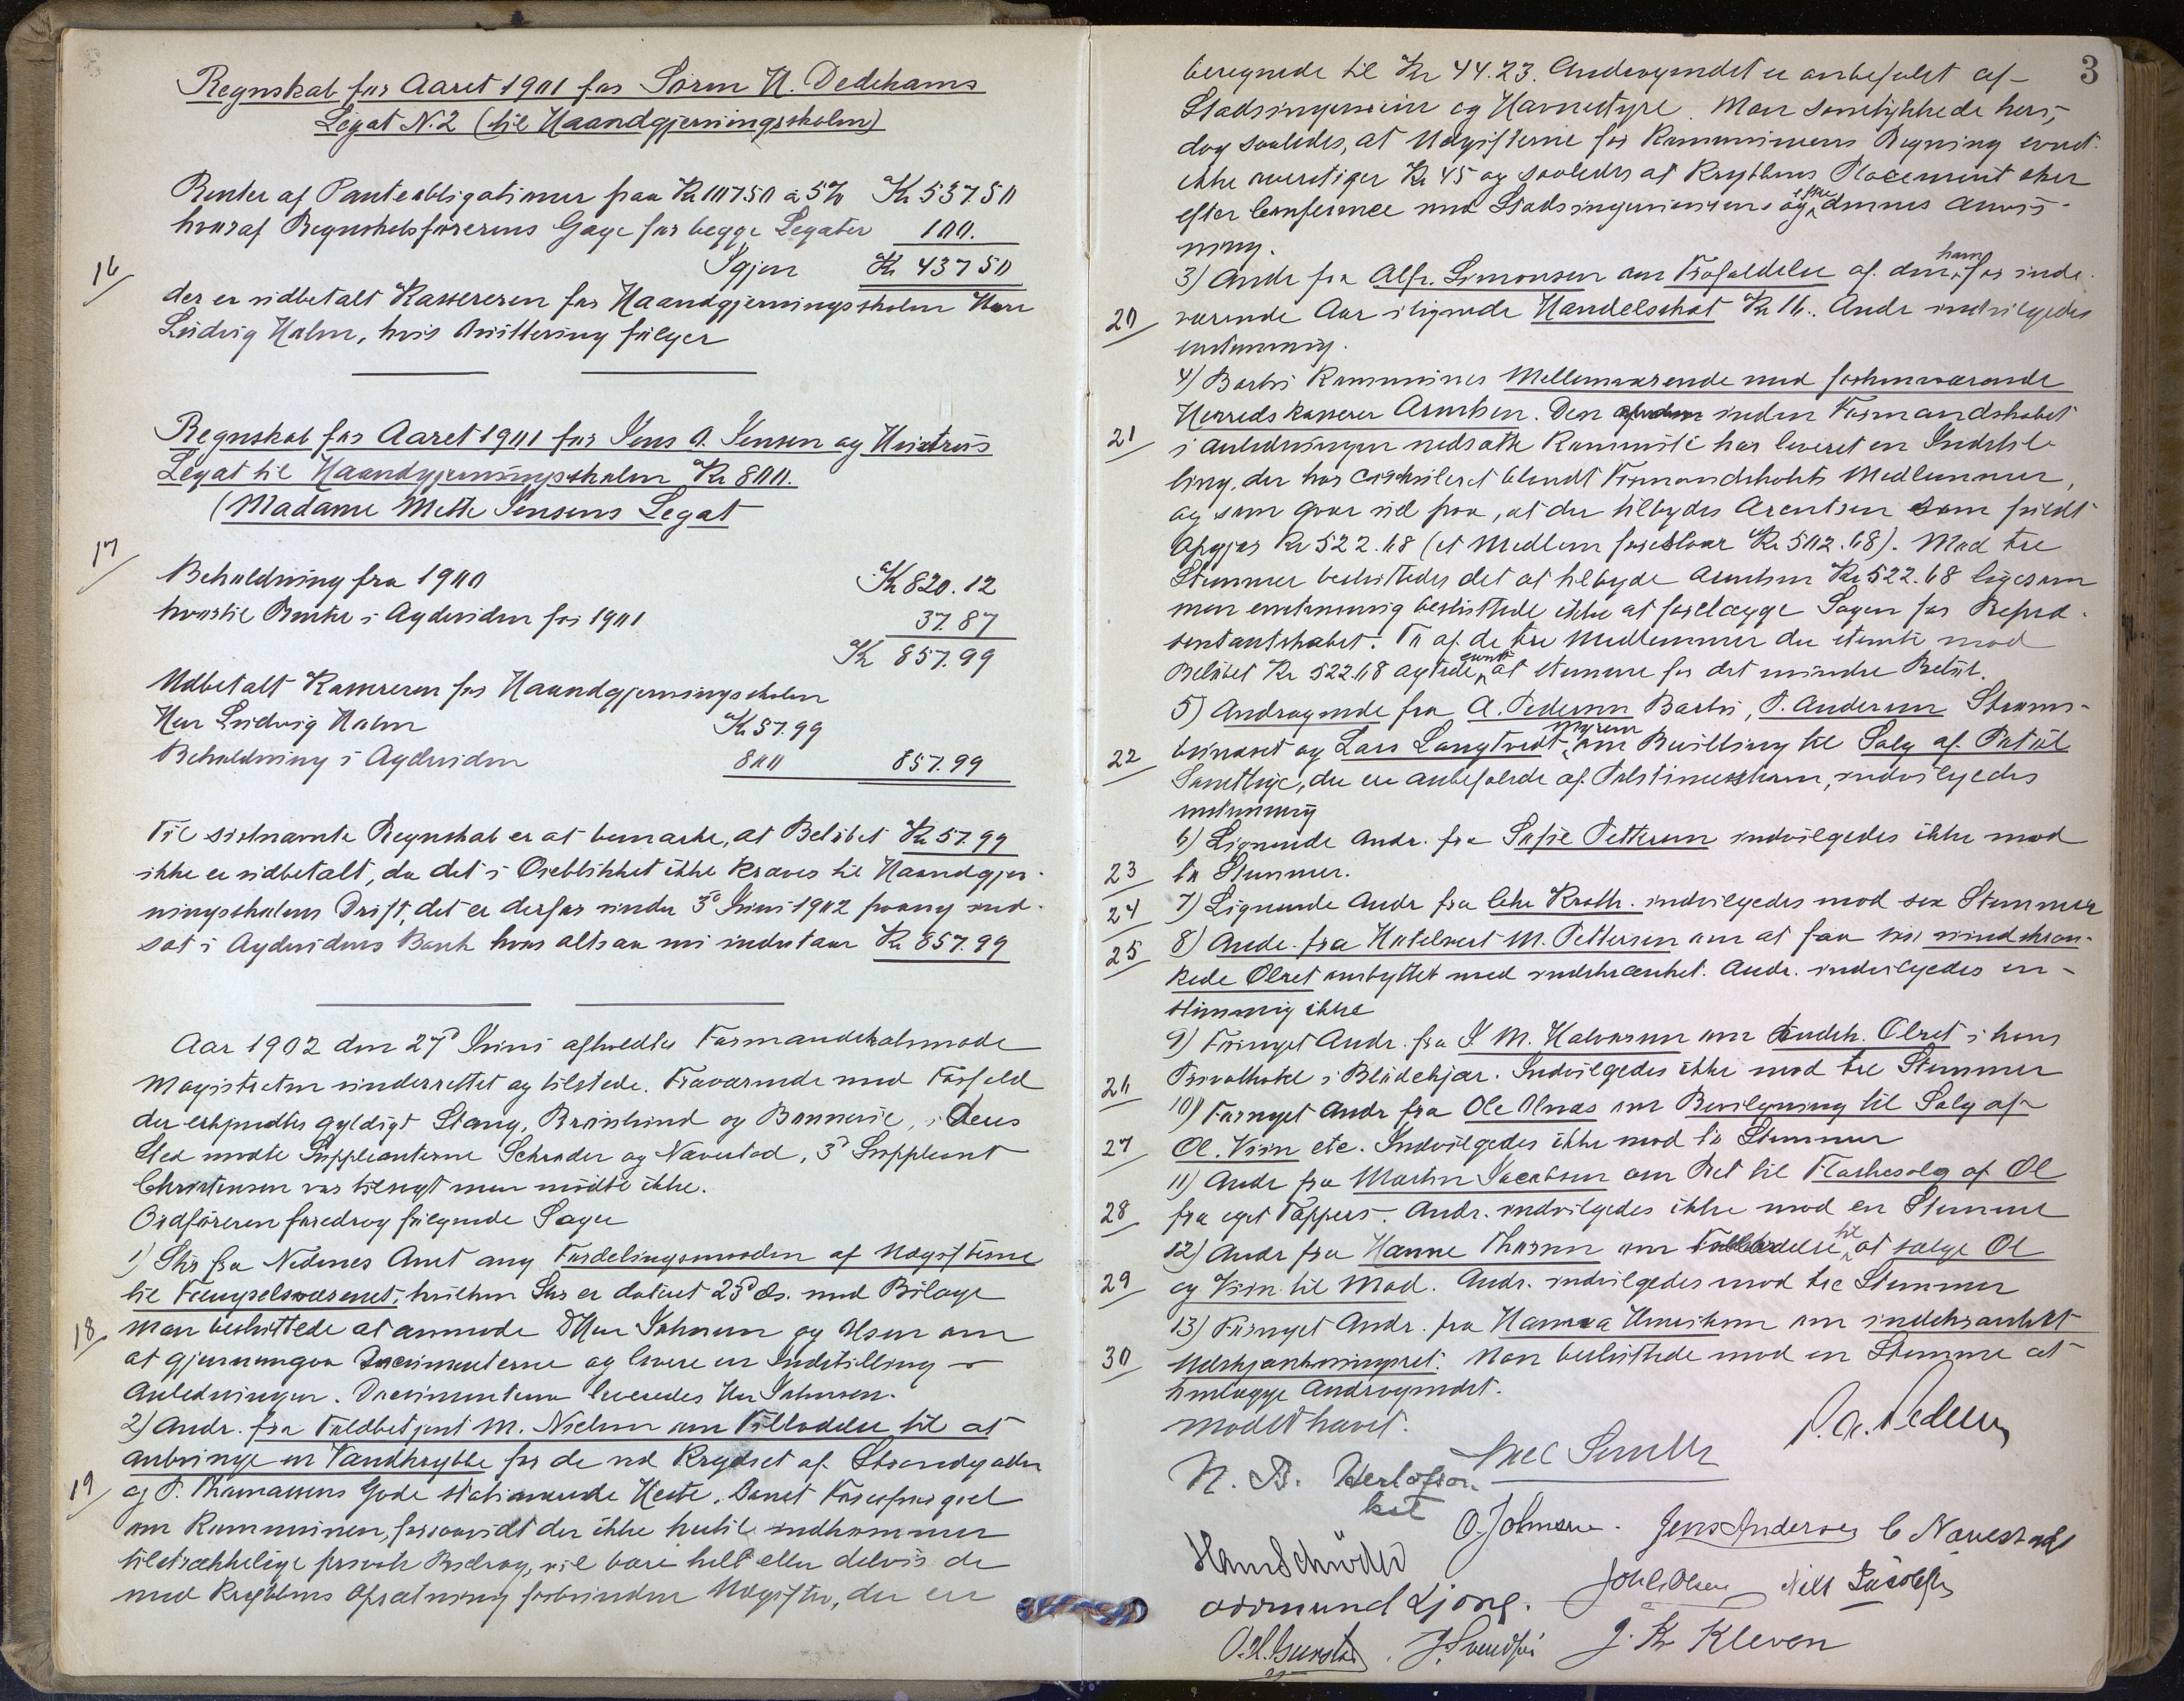 Regnskab for Aaret 1901 for Sørin N. Dedekams
Legat N.2 (til Haandgjerningsskolen)
Renter af Panteobligationer paa Kr 10750 à 5% Kr 537.50
hvoraf Regnskabsførerens Gage for begge Legater 100.
Igjen Kr 437 50
16
der er udbetalt Kassereren for Haandgjerningsskolen Herr
Ludvig Holm, hvis Kvittering følger
Regnskab for Aaret 1901 for Jens A. Jensen og Hustrus
Legat til Haandgjerningsskolen Kr 800.
(Madame Mette Jensens Legat
17
Beholdning fra 1900 Kr 820.12
hvortil Renter i Agdesiden for 1901 37.87
Kr 857.99
Udbetalt Kassereren for Haandgjerningsskolen
Herr Ludvig Holm Kr 57.99
Beholdning i Agdesiden 800 857.99
Til sistnævnte Regnskab er at bemærke, at Beløbet Kr 57.99
ikke er udbetalt, da det i Øieblikket ikke kræves til Haandgjer-
ningsskolens Drift, det er derfor under 3d Juni 1902 paany ind-
sat i Agdesidens Bank hvor altsaa nu indestaar Kr 857.99
Aar 1902 den 27d Juni afholdtes Formandskabsmøde
Magistraten underrettet og tilstede. Fraværende med Forfald
der erkjendtes gyldigt Stang, Brinkind og Bonnevie, i Deres
Sted mødte Suppleanterne Schrøder og Navestad, 3d Suppleant
Christensen var tilsagt men mødte ikke.
Ordføreren foredrog følgende Sager
1) Skr fra Nedenes Amt ang Fordelingsmaaden af Udgifterne
til Fængselsvæsenet, hvilken Skr er dateret 23d ds. med Bilage
18 Man besluttede at anmode DHerr Johnsen og Olsen om
at gjennemgaa Documenterne og levere en Indstilling i
Anledningen. Documenterne leveredes Herr Johnsen.
2) Andr. fra Toldbetjent M. Nielsen om Tilladelse til at
anbringe en Vandkrybbe for de ved Krydset af Strandgaden
19 og P. Thomassens Gade stationerende Heste. Samt Forespørgsel
om Kommunen, forsaavidt der ikke hertil indkommer
tilstrækkelige private Bidrag, vil bære helt eller delvis de
med Krybbens Opsætning forbundne Udgifter, der er
3
beregnede til Kr 44.23. Andragendet er anbefalet af
Stadsingeniøren og Havnestyre. Man samtykkede heri,
dog saaledes, at Udgifterne for Kommunens Regning event.
ikke overstiger Kr 45 og saaledes at Krybbens Placement sker
efter Conference med Stadsingeniøren og efter dennes Anvis-
ning.
3) Andr fra Alfr. Simonsen om Frafaldelse af den ham for inde-
20 værende Aar ilignede Handelsskat Kr 16. Andr indvilgedes
enstemmig.
4) Barbu Kommunes Mellemværende med forhenværende
Herredskasserer Arentsen. Den inden Formandskabet
21 i Anledningen nedsatte Kommité har leveret en Indstil-
ling, der har cirkuleret blandt Formandskabets Medlemmer,
og som gaar ud paa, at der tilbydes Arentsen som fuldt
Opgjør Kr 522.68 (et Medlem foreslaar Kr 502.68). Mod tre
Stemmer besluttedes det at tilbyde Arentsen Kr 522.68 ligesom
man enstemmig besluttede ikke at forelægge Sagen for Repræ-
sentantskabet. To af de tre Medlemmer der stemte mod
Beløbet Kr 522.68 agtede event at stemme for det mindre Beløb.
5) Andragende fra A. Pedersen Barbu, P. Andersen Strøms-
22 buneset og Lars Langtvedt Myren om Bevilling til Salg af Patøl
Samtlige, der er anbefalede af Politimesteren, indvilgedes
enstemmig
6) Lignende Andr. fra Sofie Pettersen indvilgedes ikke mod
23 to Stemmer.
24 7) Lignende Andr fra Chr Kroth. indvilgedes mod sex Stemmer
25 8) Andr. fra Hotelvert M. Pettersen om at faa sin uindskræn-
kede Ølret ombyttet med indskrænket. Andr. indvilgedes en-
stemmig ikke
9) Fornyet Andr. fra J. M. Halvorsen om Indsk. Ølret i hans
26 Privathotel i Blødekjær. Indvilgedes ikke mod tre Stemmer
10) Fornyet Andr fra Ole Olnes om Bevilgning til Salg af
27 Øl, Viin etc. Indvilgedes ikke mod to Stemmer
11) Andr fra Martin Jacobsen om Ret til Flaskesalg af Øl
28 fra eget Tapperi. Andr. indvilgedes ikke mod en Stemme
12) Andr fra Hanne Thorsen om Tilladelse til at sælge Øl
29 og Viin til Mad. Andr. indvilgedes mod tre Stemmer
13) Fornyet Andr. fra Hanna Henriksen om indskrænket
30 Udskjænkningsret. Man besluttede mod en Stemme at
henlægge Andragendet.
Mødet hævet.
P. A. Pedersen
N. B. Herlofson Axel Smith
O. Johnsen. Jens Andersen C Navestad
Hans Schrøder
Joh. C. Olsen Nils
Aasmund Ljone.
O. H. J. Svendsen J. Kr Kleven